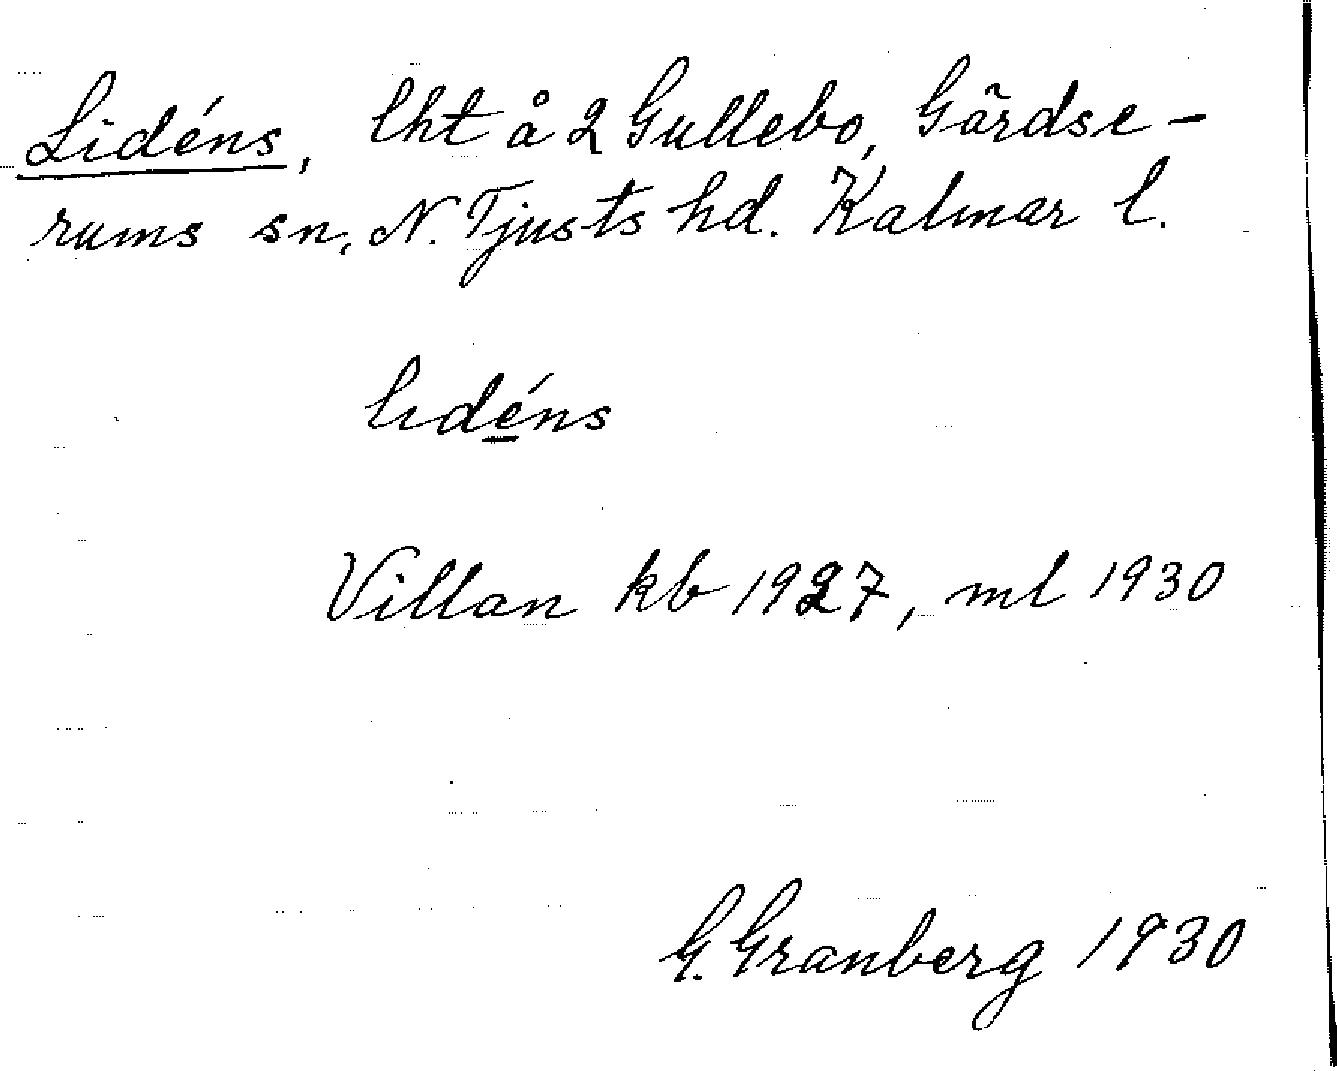 Lidéns, lht å 2 Gullebo, Gärdse-
rums sn, N. Tjusts hd. Kalmar l.
lidéns
Villan kb 1927, ml 1930
G. Granberg 1930